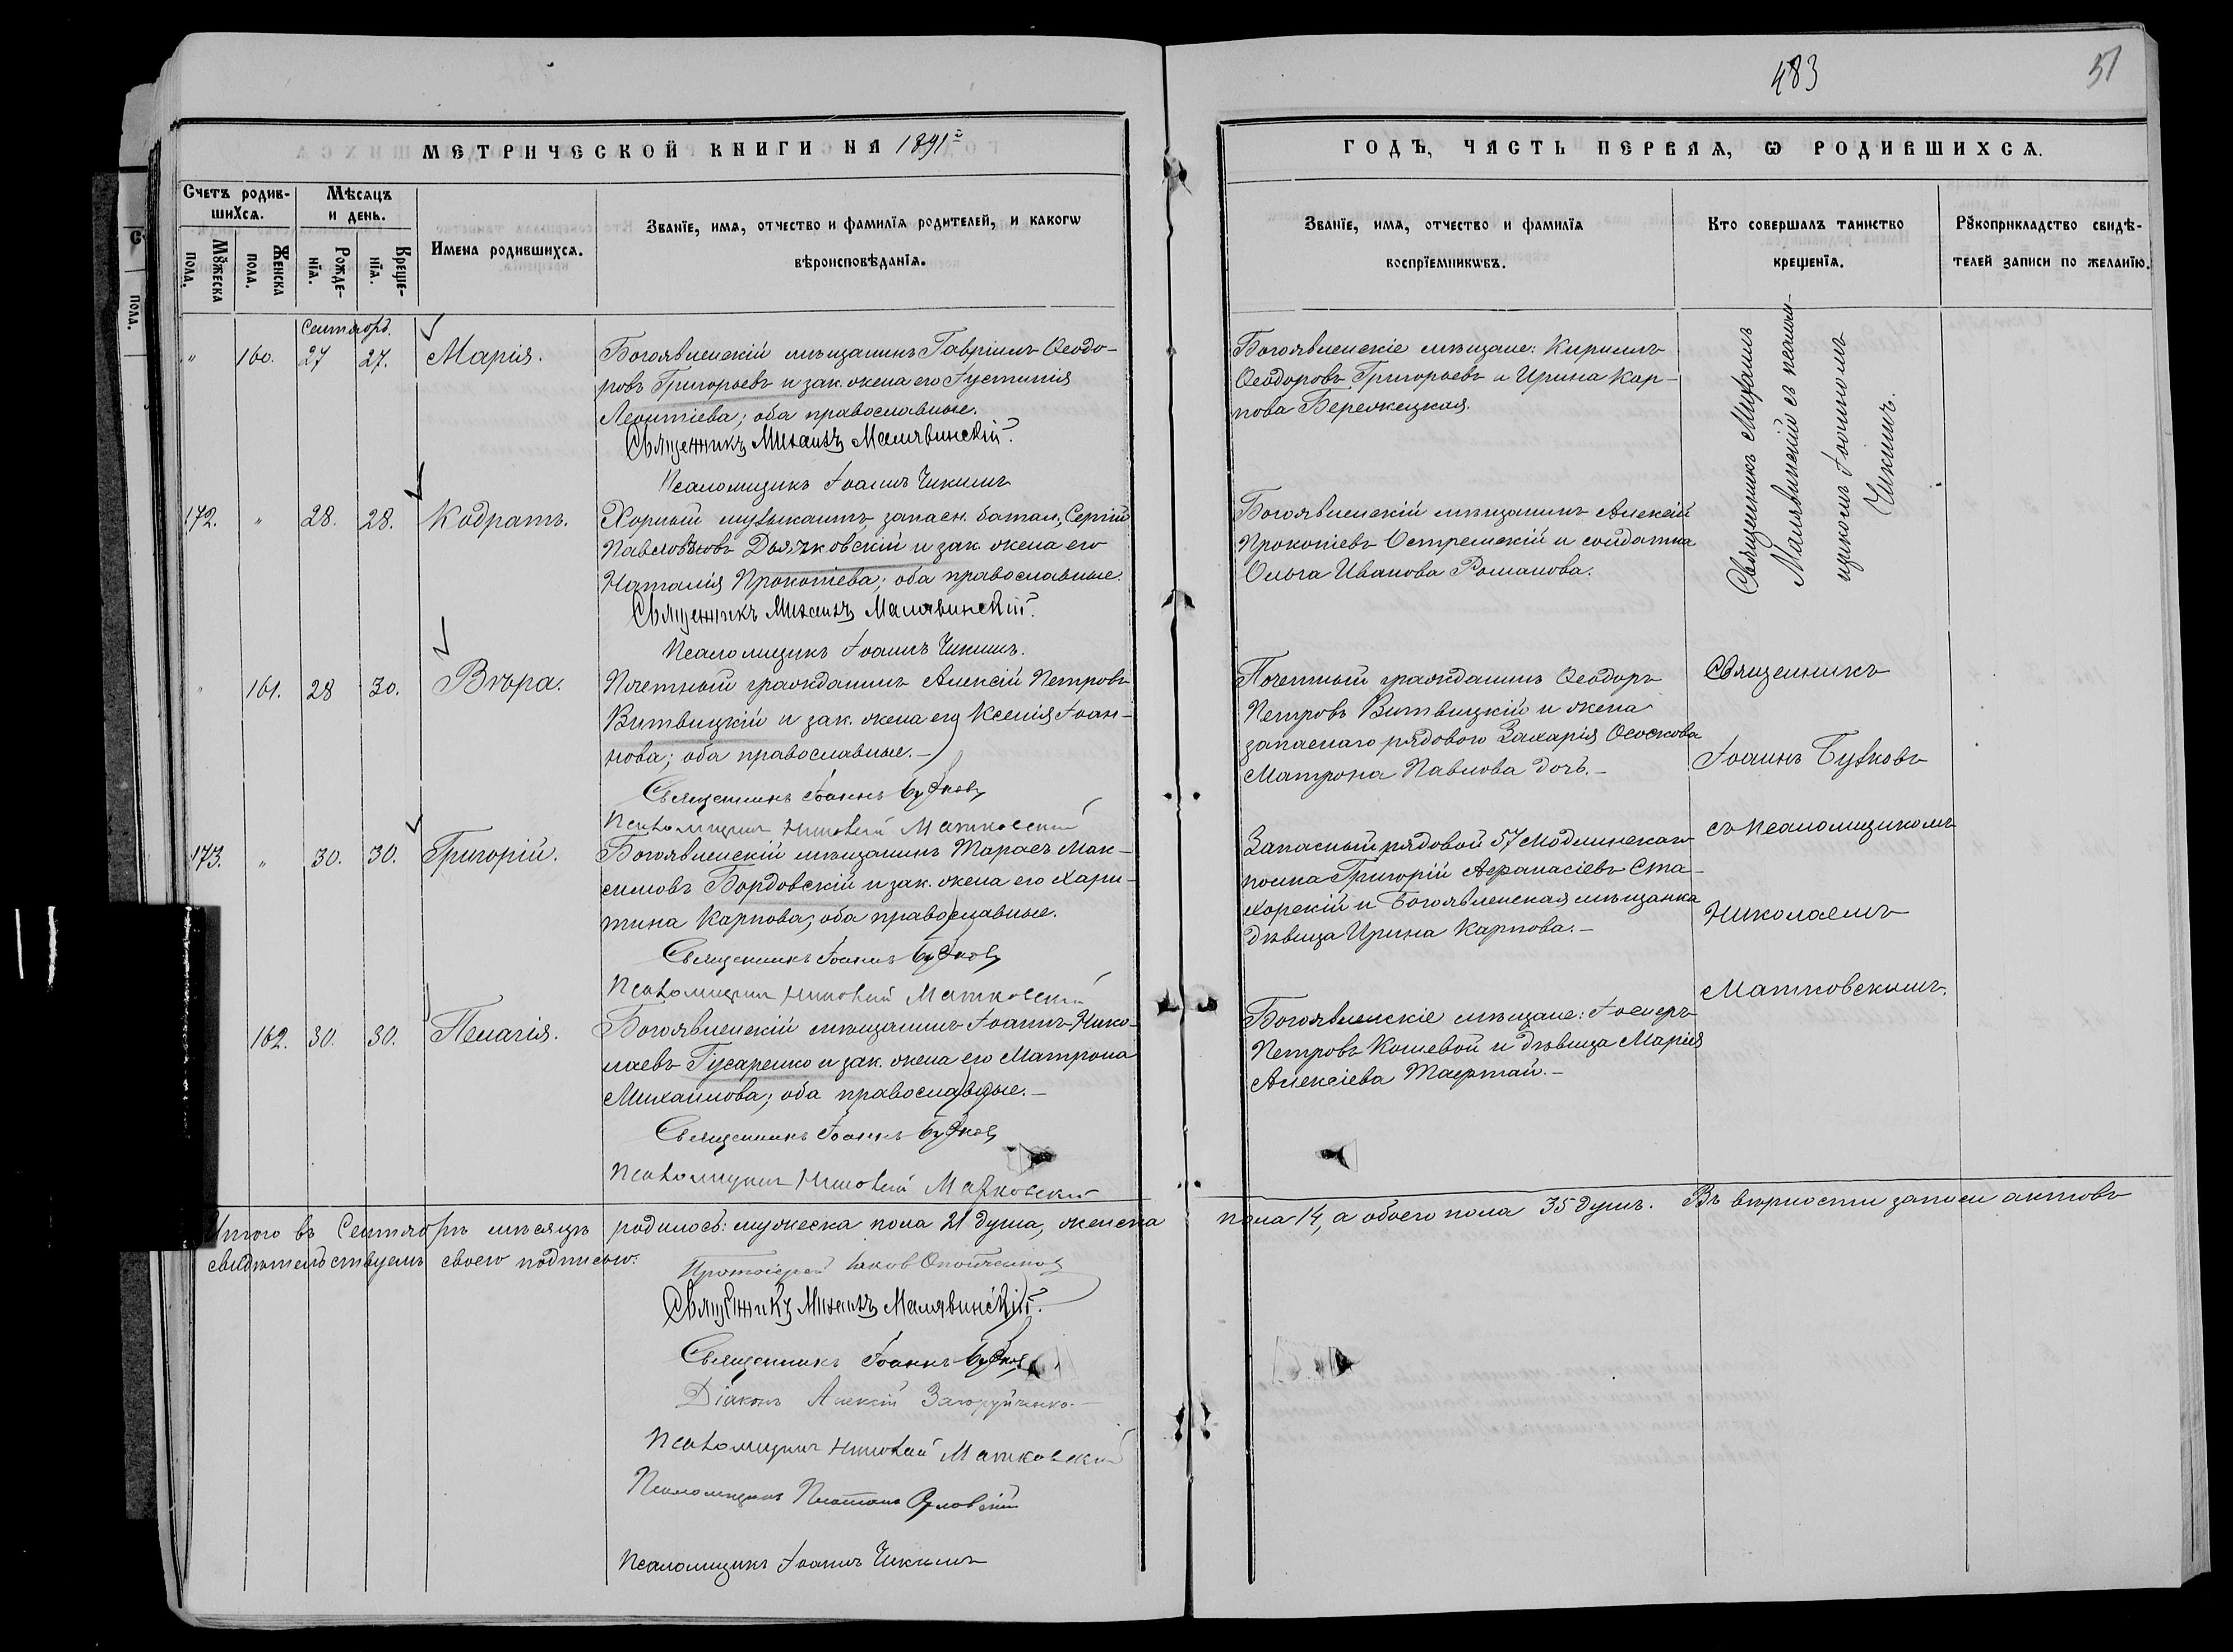 483
51
МЕТРИЧЕСКОЙ КНИГИ НА 1891й
ГОДЪ, ЧАСТЬ ПЕРВАЯ, Ѡ РОДИВШИХСЯ.
Счетъ родив-
шихся.
Мѣсяцъ
и день.
Мꙋжеска
пола.
Женска
пола.
Рожде-
нїя.
Креще-
нїя.
Имена родившихся.
Званїе, имя, отчество и фамилїя родителей, и какогѡ
вѣроисповѣданїя.
Званїе, имя, отчество и фамилїя
воспрїемникѡвъ.
Кто совершалъ таинство
крещенїя.
Рꙋкоприкладство свидѣ-
телей записи по желанїю.
Сентябрь.
" 160. 27 27. Марія.
Богоявленскій мѣщанинъ Гавріилъ Ѳеодо-
ровъ Григорьевъ и зак. жена его Іустинія
Леонтіева; оба православные.
Священникъ Михаилъ Малявинскій.
Псаломщикъ Іоаннъ Чикинъ
Богоявленскіе мѣщане: Кириллъ
Ѳеодоровъ Григорьевъ и Ирина Кар-
пова Бережецкая.
Священникъ Михаилъ
Малявинскій съ псалом-
щикомъ Іоанномъ
Чикинъ.
172. " 28. 28. Кодратъ.
Хорный музыкантъ запасн. батал. Сергій
Павловъ Дьячковскій и зак. жена его
Наталія Прокопіева; оба православные.
Священникъ Михаилъ Малявинскій.
Псаломщикъ Іоаннъ Чикинъ.
Богоявленскій мѣщанинъ Алексій
Прокопіевъ Остремскій и солдатка
Ольга Иванова Романова.
" 161. 28 30. Вѣра.
Почетный гражданинъ Алексій Петровъ
Витвицкій и зак. жена его Ксенія Іоан-
нова; оба православные.-
Священникъ Іоаннъ Бузковъ
Псаломщикъ Николай Матковскій
Почетный гражданинъ Ѳеодоръ
Петровъ Витвицкій и жена
запаснаго рядового Захарія Ососкова
Матрона Павлова дочь.-
Священникъ
Іоаннъ Бузковъ
съ псаломщикомъ
Николаемъ
Матковскимъ.
173. " 30. 30. Григорій.
Богоявленскій мѣщанинъ Тарасъ Мак-
симовъ Бордовскій и зак. жена его Хари-
тина Карпова; оба православные.
Священникъ Іоаннъ Бузковъ
Псаломщикъ Николай Матковскій
Запасный рядовой 57 Модлинскаго
полка Григорій Аѳанасіевъ Ста-
хорскій и Богоявленская мѣщанка
дѣвица Ирина Карпова.-
162. 30. 30. Пелагія.
Богоявленскій мѣщанинъ Іоаннъ Нико-
лаевъ Гусаренко и зак. жена его Матрона
Михаилова; оба православные.-
Священникъ Іоаннъ Бузковъ
Псаломщикъ Николай Матковскій
Богоявленскіе мѣщане: Іосифъ
Петровъ Кошевой и дѣвица Марія
Алексіева Таертай.-
Итого въ Сентябрѣ мѣсяцѣ родилось: мужеска пола 21 душа, женска пола 14, а обоего пола 35 душъ. Въ вѣрности записи актовъ
свидѣтельствуемъ своею подписью:
Протоіерей Іаков
Священникъ Михаилъ Малявинскій.
Священникъ Іоаннъ Бузковъ
Діаконъ Алексій Загоруйченко.-
Псаломщикъ Николай Матковскій
Псаломщикъ Платонъ Орловскій
Псаломщикъ Іоаннъ Чикинъ